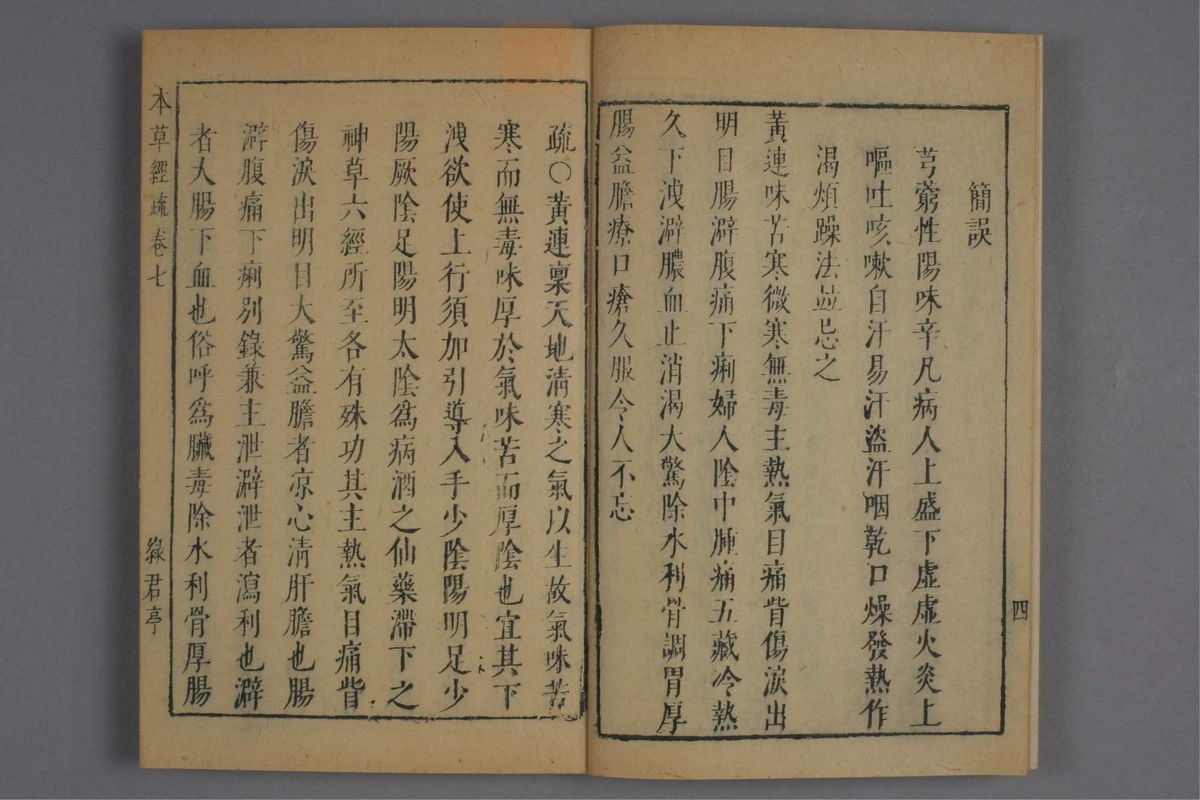 簡誤
芎藭性陽味辛凡病人上盛下虛虛火炎上
嘔吐咳嗽自汗易汗盜汗咽乾口燥發熱作
渴煩躁法並忌之
黃連味苦寒微寒無毒主熱氣目痛眥傷淚出
明目腸澼腹痛下痢婦人陰中腫痛五藏冷熱
久下洩澼膿血止消渴大驚除水利骨調胃厚
腸益膽療口瘡久服令人不忘
四
疏〇黃連稟天地清寒之氣以生故氣味苦
寒而無毒味厚於氣味苦而厚陰也宜其下
洩欲使上行須加引導入手少陰陽明足少
陽厥陰足陽明太陰爲病酒之仙藥滯下之
神草六經所至各有殊功其主熱氣目痛眥
傷淚出明目大驚益膽者凉心清肝膽也腸
澼腹痛下痢別錄兼主泄澼泄者瀉利也澼
者大腸下血也俗呼爲臟毒除水利骨厚腸
本草經疏卷七
綠君亭